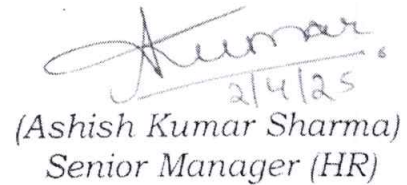 AKumar
2/4/25
(Ashish Kumar Sharma)
Senior Manager (HR)